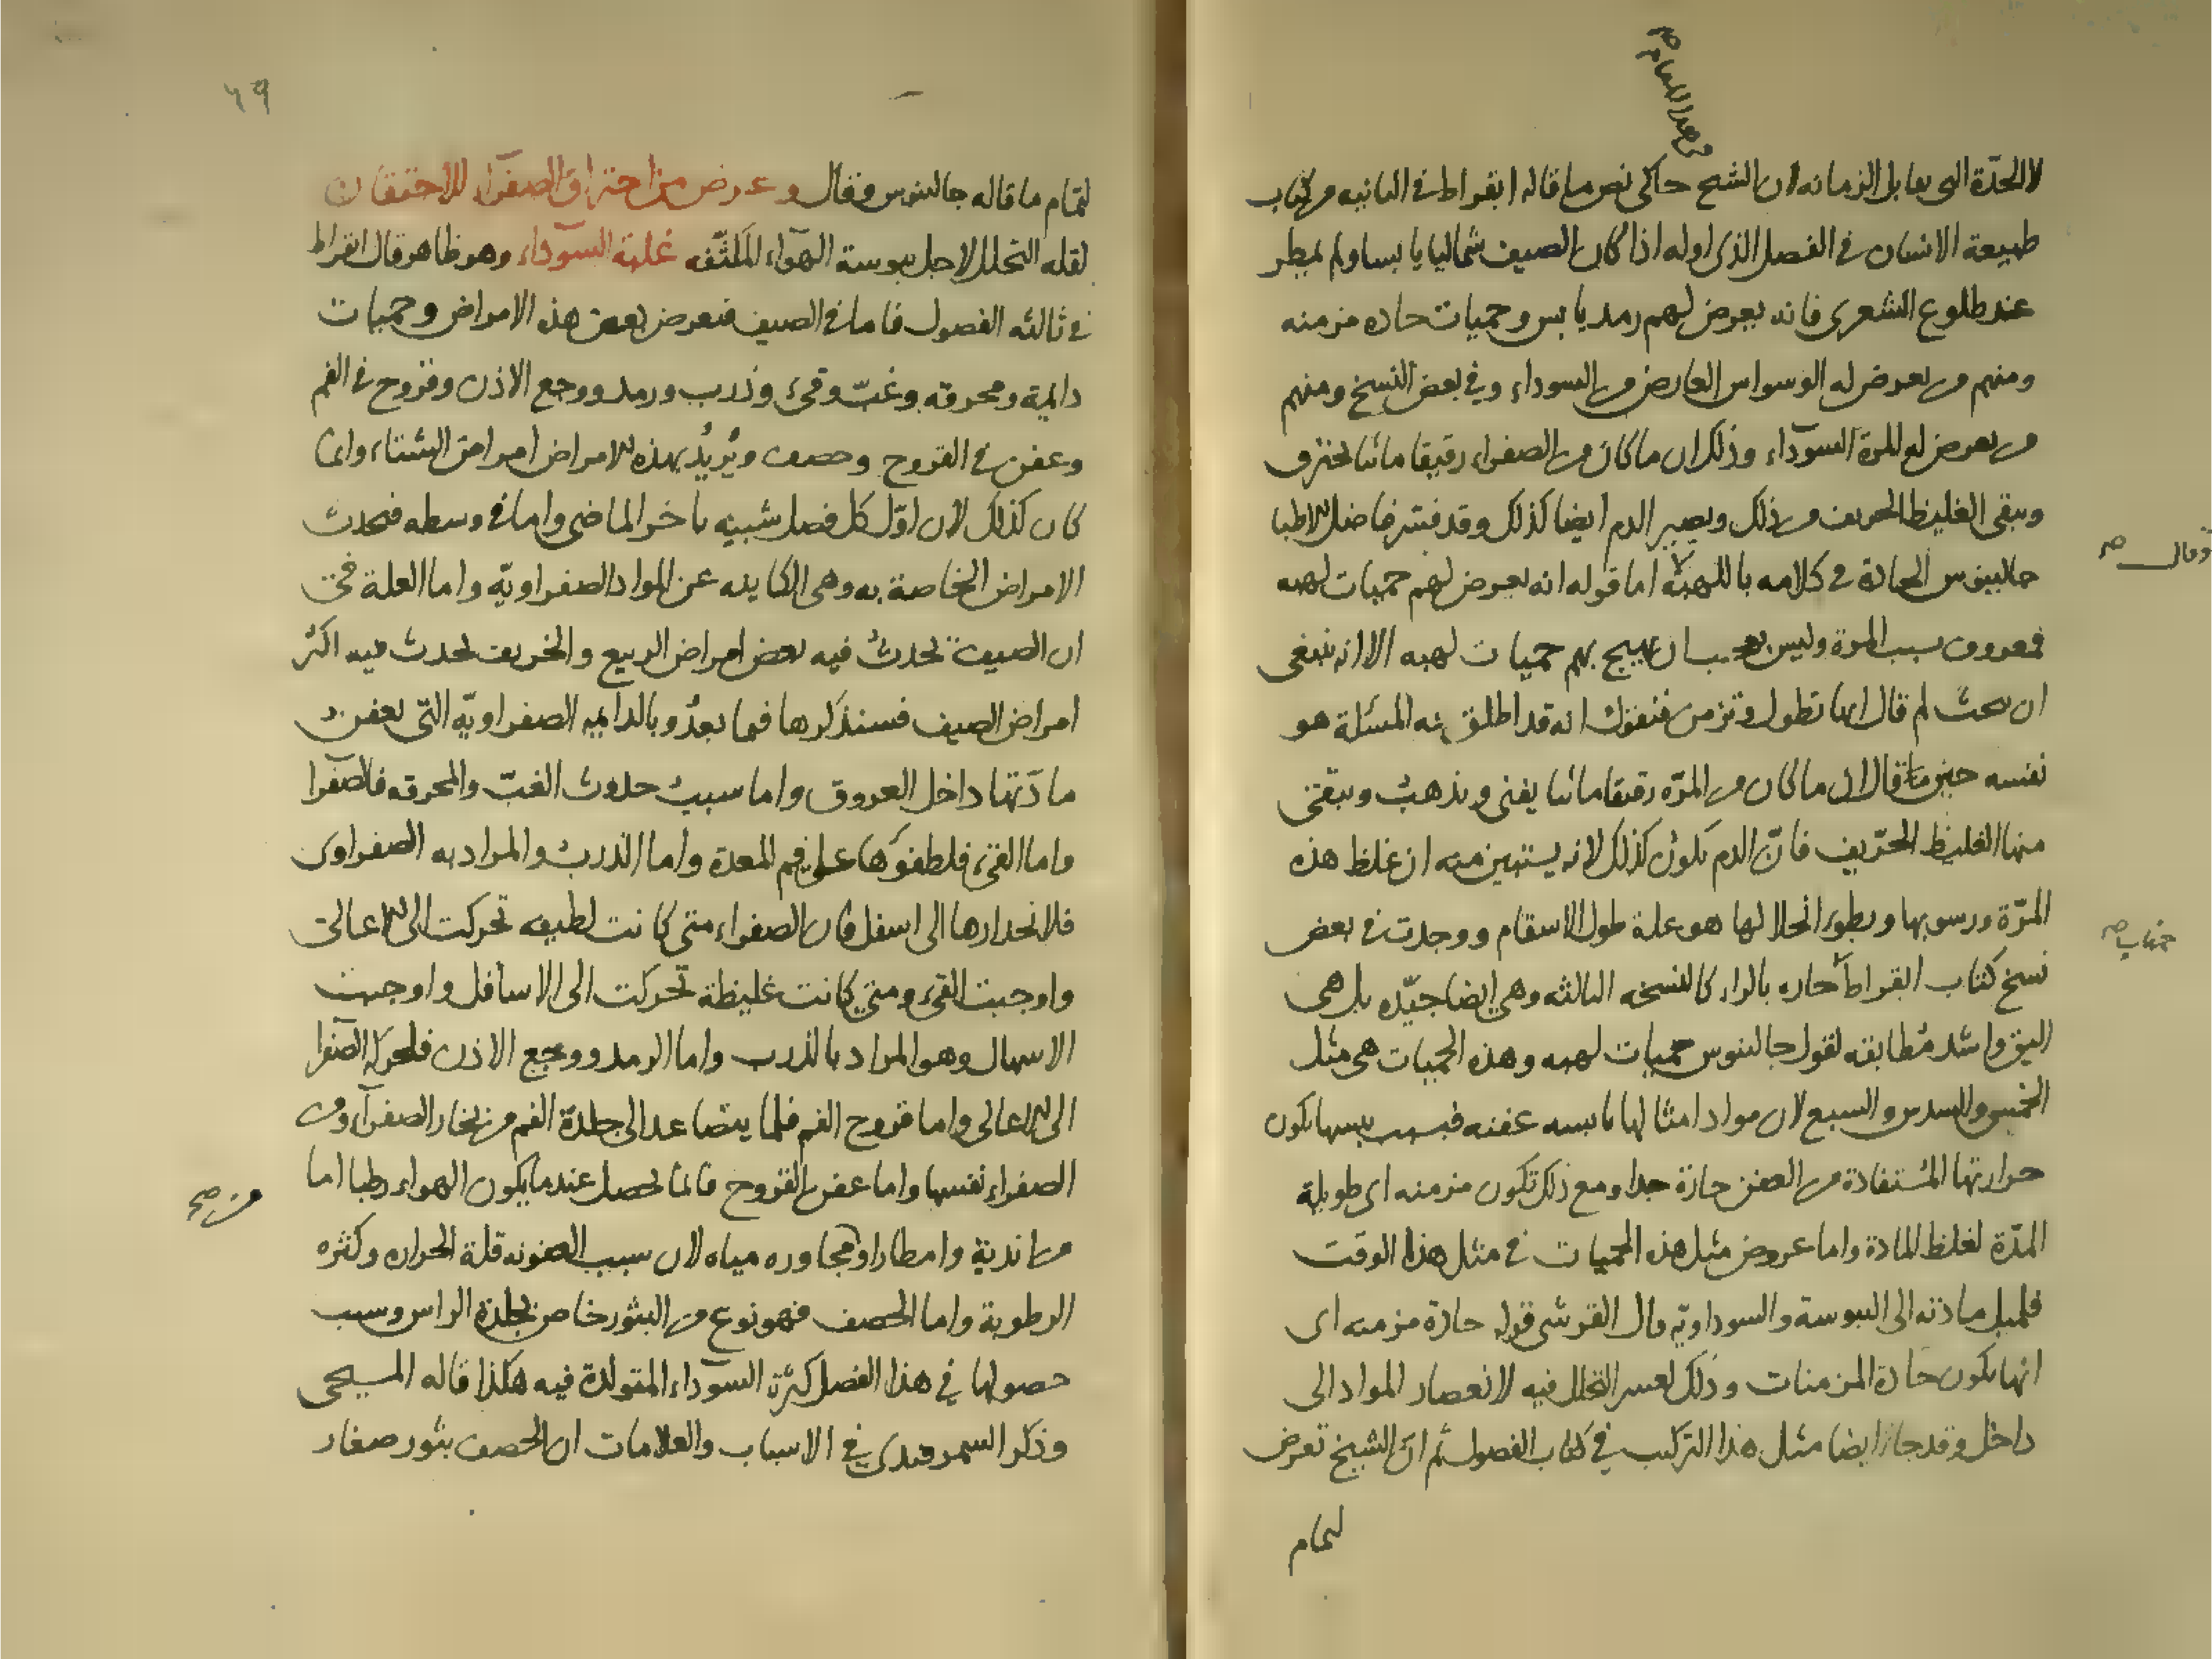 لا الحدّة التي تقابل الزمانه لان الشيخ حاكى نص ما قاله ابقراط في الثانيه من كتاب
طبيعة الانسان في الفصل الذي اوله اذا كان الصيف شماليا يابسا ولم يمطر
عند طلوع الشعرى فانه يعرض لهم رمد يابس وحميات حاده مزمنه
ومنهم من يعرض له الوسواس العارض من السوداء وفي بعض النسخ ومنهم
من يعرض له المرة السوداء وذلك ان ما كان من الصفراء رقيقا مائيا يحترف
ويبقى الغليظ الحريف من ذلك ويصير الدم ايضا كذلك وقد فسّر فاضل الاطبا
جالينوس الحادة في كلامه باللهبه اما قوله انه يعرض لهم حميات لهبه
فمعروف بسبب المرة وليس بعجب ان يهيج بهم حميات لهبه الا انه ينبغي
ان يبحث لم قال انها تطول وتزمن فنقول انه قد اطلق هذه المسئلة هو
نفسه حين ما قال ان ما كان من المرّة رقيقا مائيا يفنى ويذهب ويبقى
منها الغليظ الحرّيف فانّ الدم يكون كذلك لانه يستبين منه ان غلظ هذه
المرّة ورسوبها وبطوء انحلالها هو علة طول الاسقام ووجدت في بعض
نسخ كتاب ابقراط حاره بالراء كالنسخه الثالثه وهي ايضا جيّده بل هي
اليق واشد مطابقه لقول جالينوس حميات لهبه وهذه الحميات هي مثل
الخمس والسدس والسبع لان مواد امثالها يابسه عفنه فبسبب يبسها يكون
حرارتها المستفادة من العفن حارة جدا ومع ذلك تكون مزمنه اى طويلة
المدّة لغلظ المادة واما عروض مثل هذه الحميات في مثل هذا الوقت
فلميل مادته الى اليبوسة والسوداويّه قال القرشي قوله حادة مزمنه اى
انها يكون حادة المزمنات وذلك لعسر التحلل فيه لانعصار المواد الى
داخل وقد جاز ايضا مثل هذا التركيب في كتاب الفصول ثم ان الشيخ تعرض
لتمام
وقال صح
حميات صح
٦٩
لتمام ما قاله جالينوس وقال وعرض من احتراق الصفراء للاحتقان
لقله التحلل لاجل يبوسة الهواء المكثّفه غلبة السوداء وهو ظاهر قال ابقراط
في ثالثه الفصول فاما في الصيف فيعرض بعض هذه الامراض وحميات
دايمة ومحرقه وغبّ وقىء وذرب ورمد ووجع الاذن وقروح في الفم
وعفن في القروح وحصف ويُريدُ بهذه الامراض امراض الشتاء وانما
كان كذلك لان اوّل كل فصل شبيه باخر الماضي واما في وسطه فيحدث
الامراض الخاصة به وهي الكاينه عن المواد الصفراويّه واما العلة في
ان الصيف تحدث فيه بعض امراض الربيع والخريف يحدث فيه اكثر
امراض الصيف فسنذكرها فيما بعدُ وبالدايمه الصفراويّه التي يعفن
مادّتها داخل العروق واما سبب حدوث الغبّ والمحرقه فلاصفرا
واما القىء فلطفوها على فم المعدة واما الذرب والمراد به الصفراوى
فلانحدارها الى اسفل فان الصفراء متى كانت لطيفه تحركت الى الاعالى
واوجبت القىء ومتى كانت غليظة تحركت الى الاسافل واوجبت
الاسهال وهو المراد بالذرب واما الرمد ووجع الاذن فلحركة الصفرا
الى الاعالى واما قروح الفم فلما يتصاعد الى جلدة الفم من بخار الصفراء ومن
الصفراء نفسها واما عفن القروح فانما يحصل عندما يكون الهواء رطبا اما
من اندية وامطار او مجاوره مياه لان سبب العفونه قلة الحراره وكثره
الرطوبة واما الحصف فهو نوع من البثور خاص بجلدة الراس وسبب
حصولها في هذا الفصل كثرة السوداء المتولدة فيه هكذا قاله المسيحى
وذكر السمرقندى في الاسباب والعلامات ان الحصف بثور صغار
من صح